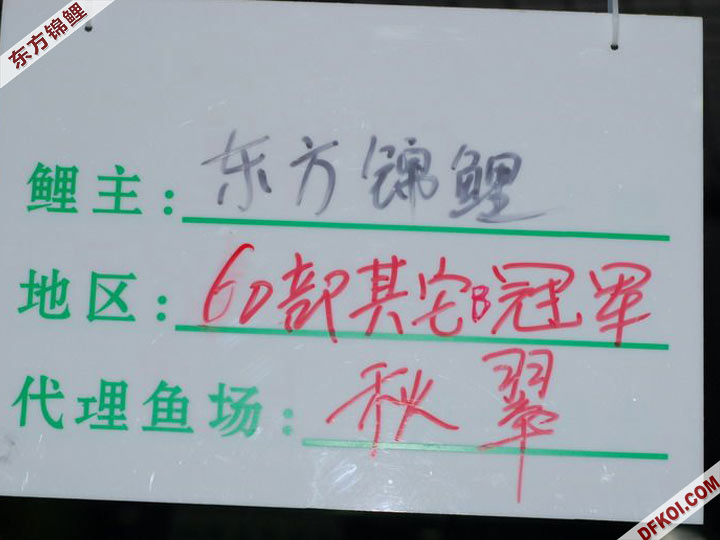 东方锦鲤
鲤主：东方锦鲤
地区：60部其它B冠军
代理鱼场：秋翠
DFKOI.COM